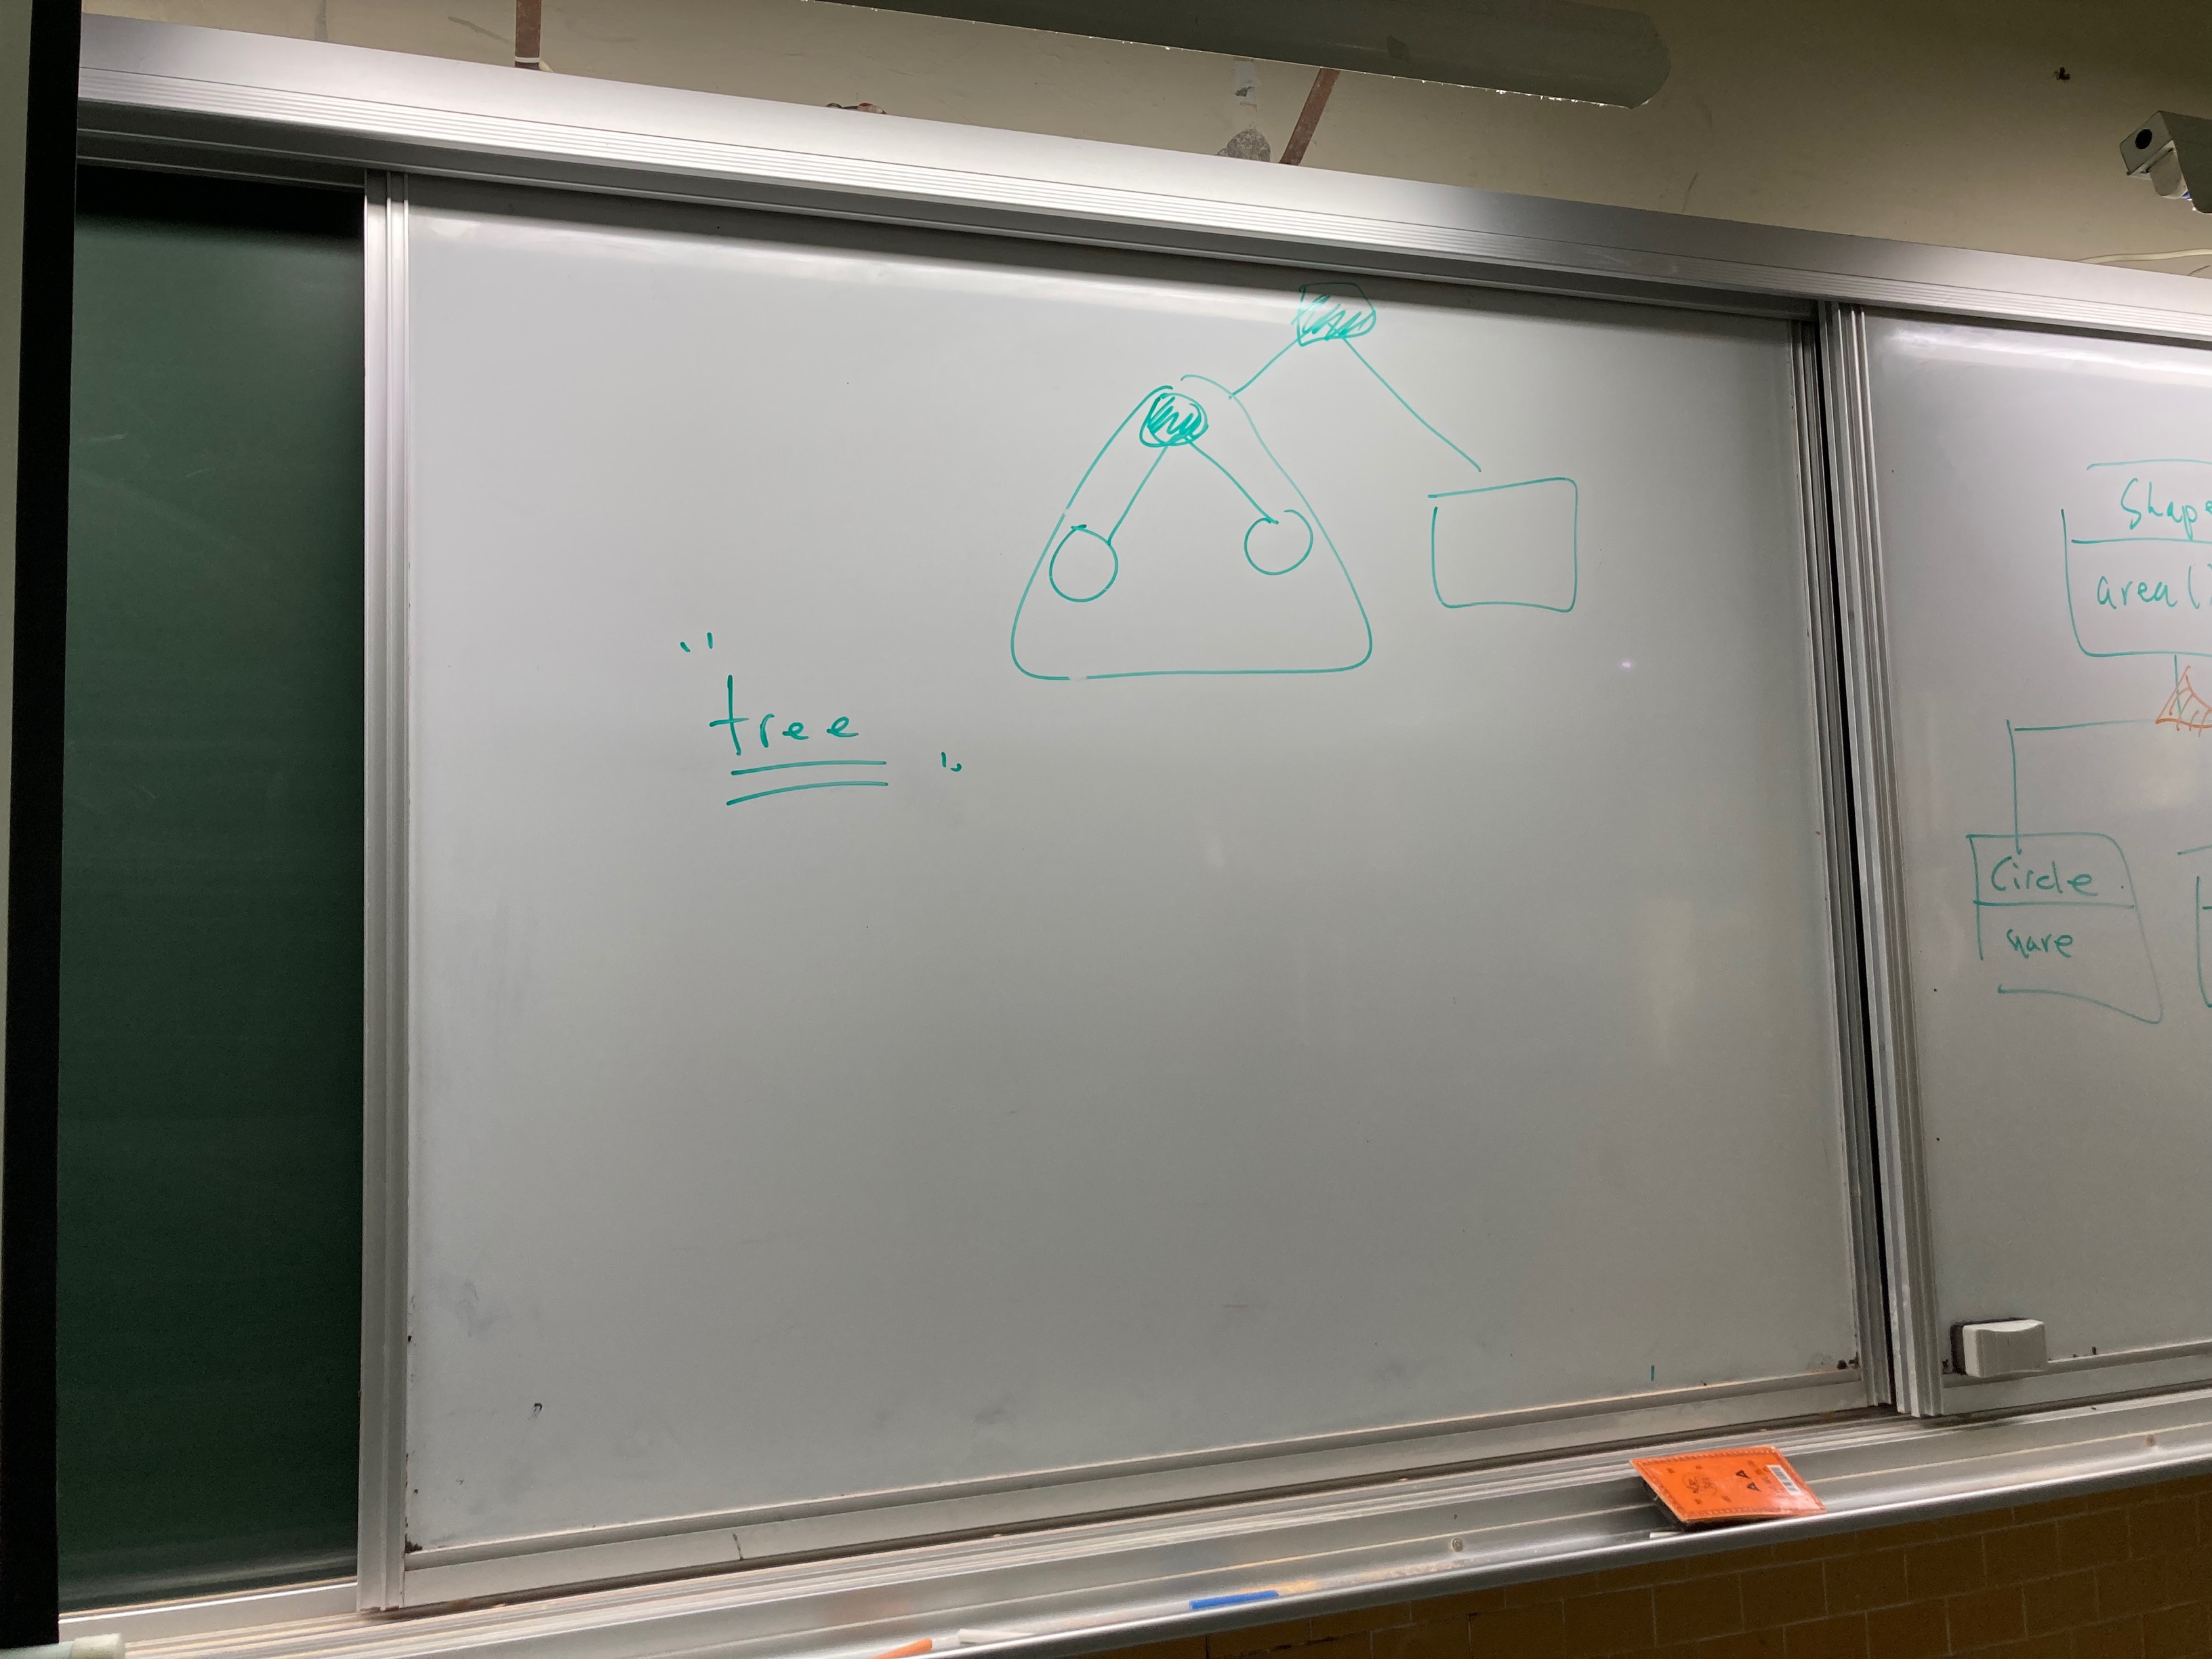 "tree"
Shape
area()
Circle